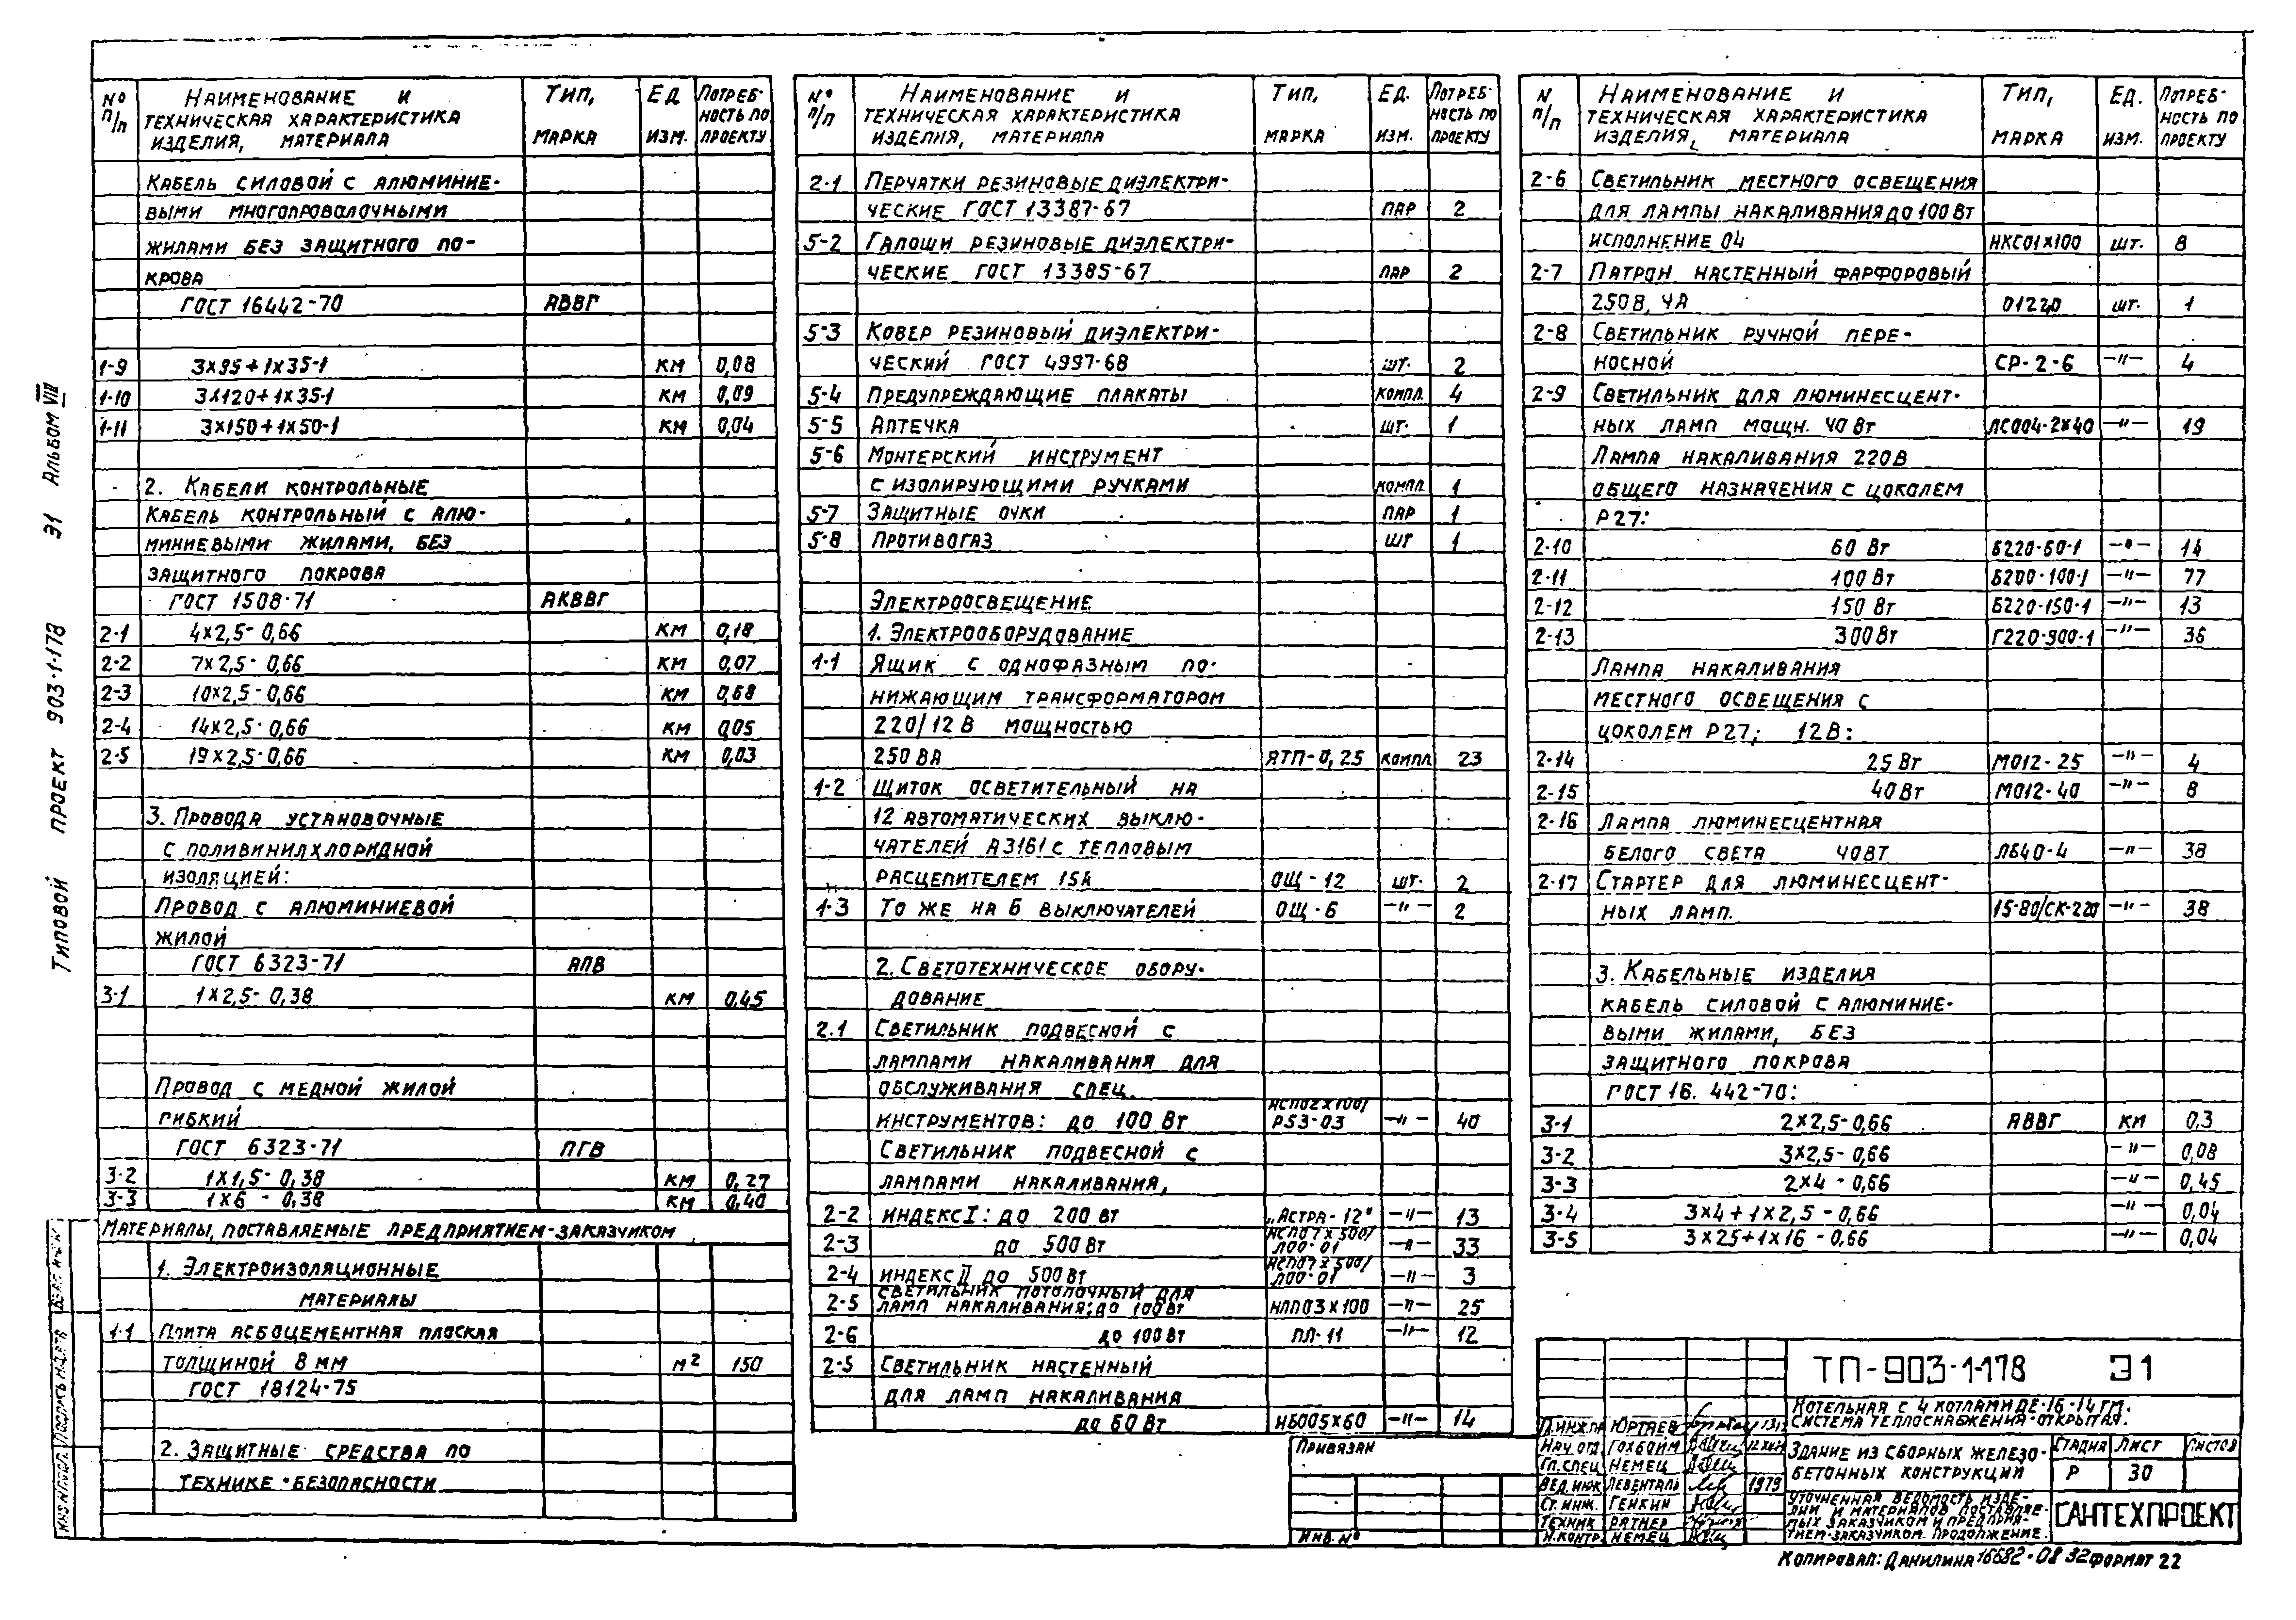 № п/п Наименование и техническая характеристика изделия, материала Тип, марка Ед изм. Потреб-ность по проекту
Кабель силовой с алюминие-
выми многопроволочными
жилами без защитного по-
крова
ГОСТ 16442-70 АВВГ
1-9 3х95+1х35-1 км 0,08
1-10 3х120+1х35-1 км 0,09
1-11 3х150+1х50-1 км 0,04
2. Кабели контрольные
Кабель контрольный с алю-
миниевыми жилами, без
защитного покрова
ГОСТ 1508-71 АКВВГ
2-1 4х2,5-0,66 км 0,18
2-2 7х2,5-0,66 км 0,07
2-3 10х2,5-0,66 км 0,68
2-4 14х2,5-0,66 км 0,05
2-5 19х2,5-0,66 км 0,03
3. Провода установочные
с поливинилхлоридной
изоляцией:
Провод с алюминиевой
жилой
ГОСТ 6323-71 АПВ
3-1 1х2,5-0,38 км 0,45
Провод с медной жилой
гибкий
ГОСТ 6323-71 ПГВ
3-2 1х1,5-0,38 км 0,27
3-3 1х6-0,38 км 0,40
Материалы, поставляемые предприятием-заказчиком
1. Электроизоляционные
материалы
1-1 Плита асбоцементная плоская
толщиной 8 мм м² 150
ГОСТ 18124-75
2. Защитные средства по
технике безопасности
№ п/п Наименование и техническая характеристика изделия, материала Тип, марка Ед. изм. Потреб-ность по проекту
2-1 Перчатки резиновые диэлектри-
ческие ГОСТ 13387-67 пар 2
5-2 Галоши резиновые диэлектри-
ческие ГОСТ 13385-67 пар 2
5-3 Ковер резиновый диэлектри-
ческий ГОСТ 4997-68 шт. 2
5-4 Предупреждающие плакаты компл. 4
5-5 Аптечка шт. 1
5-6 Монтерский инструмент
с изолирующими ручками компл. 1
5-7 Защитные очки пар 1
5-8 Противогаз шт 1
Электроосвещение
1. Электрооборудование
1-1 Ящик с однофазным по-
нижающим трансформатором
220/12 В мощностью
250 ВА ЯТП-0,25 компл 23
1-2 Щиток осветительный на
12 автоматических выклю-
чателей А3161 с тепловым
расцепителем 15А ОЩ-12 шт. 2
1-3 То же на 6 выключателей ОЩ-6 —"— 2
2. Светотехническое обору-
дование
2.1 Светильник подвесной с
лампами накаливания для
обслуживания спец.
инструментов: до 100 Вт НСП02х100/Р53-03 —"— 40
Светильник подвесной с
лампами накаливания,
2-2 индекс I: до 200 вт „Астра-12" —"— 13
2-3 до 500 Вт НСП07х500/Л00-01 —"— 33
2-4 индекс II до 500 Вт НСП07х500/Л00-01 —"— 3
Светильник потолочный для
2-5 ламп накаливания: до 100 Вт НПП03х100 —"— 25
2-6 до 100 Вт ПЛ-11 —"— 12
2-5 Светильник настенный
для ламп накаливания
до 60 Вт НБ005х60 —"— 14
N п/п Наименование и техническая характеристика изделия, материала Тип, марка Ед. изм. Потреб-ность по проекту
2-6 Светильник местного освещения
для лампы накаливания до 100 Вт
исполнение 04 НКС01х100 шт. 8
2-7 Патрон настенный фарфоровый
250 В, 4А 01220 шт. 1
2-8 Светильник ручной пере-
носной СР-2-6 —"— 4
2-9 Светильник для люминесцент-
ных ламп мощн. 40 Вт ЛС004-2х40 —"— 19
Лампа накаливания 220В
общего назначения с цоколем
Р27:
2-10 60 Вт Б220-60-1 —"— 14
2-11 100 Вт Б200-100-1 —"— 77
2-12 150 Вт Б220-150-1 —"— 13
2-13 300 Вт Г220-300-1 —"— 36
Лампа накаливания
местного освещения с
цоколем Р27; 12В:
2-14 25 Вт МО12-25 —"— 4
2-15 40 Вт МО12-40 —"— 8
2-16 Лампа люминесцентная
белого света 40ВТ ЛБ40-4 —"— 38
2-17 Стартер для люминесцент-
ных ламп. 15-80/СК-220 —"— 38
3. Кабельные изделия
кабель силовой с алюминие-
выми жилами, без
защитного покрова
ГОСТ 16. 442-70:
3-1 2х2,5-0,66 АВВГ км 0,3
3-2 3х2,5-0,66 —"— 0,08
3-3 2х4-0,66 —"— 0,45
3-4 3х4+1х2,5-0,66 —"— 0,04
3-5 3х25+1х16-0,66 —"— 0,04
Типовой проект 903-1-178 Э1 Альбом VIII
Привязан
Инв. №
ТП-903-1-178 Э1
Котельная с 4 котлами ДЕ-16-14 ГМ.
Система теплоснабжения-открытая.
Здание из сборных железо-
бетонных конструкций
Стадия Лист Листов
Р 30
Уточненная ведомость изде-
лий и материалов поставляе-
мых заказчиком и предприя-
тием-заказчиком. Продолжение.
САНТЕХПРОЕКТ
Гл.инж.пр Юртаев
Нач. отд. Гохбойм
Гл. спец. Немец
Вед. инж Левенталь 1979
Ст. инж. Генкин
Техник Ратнер
Н. контр. Немец
Копировал: Данилина 16682-08 32 формат 22